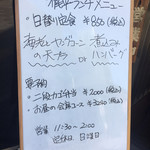 ランチメニュー
・日替り定食 ¥850(税込)
海老とヤングコーン 煮込み
の天丼 or ハンバーグ
要予約
・二段カゴ弁当 ¥2000(税込)
・お昼の会席コース ¥3250(税込)
営業 11:30〜2:00
定休日 日曜日